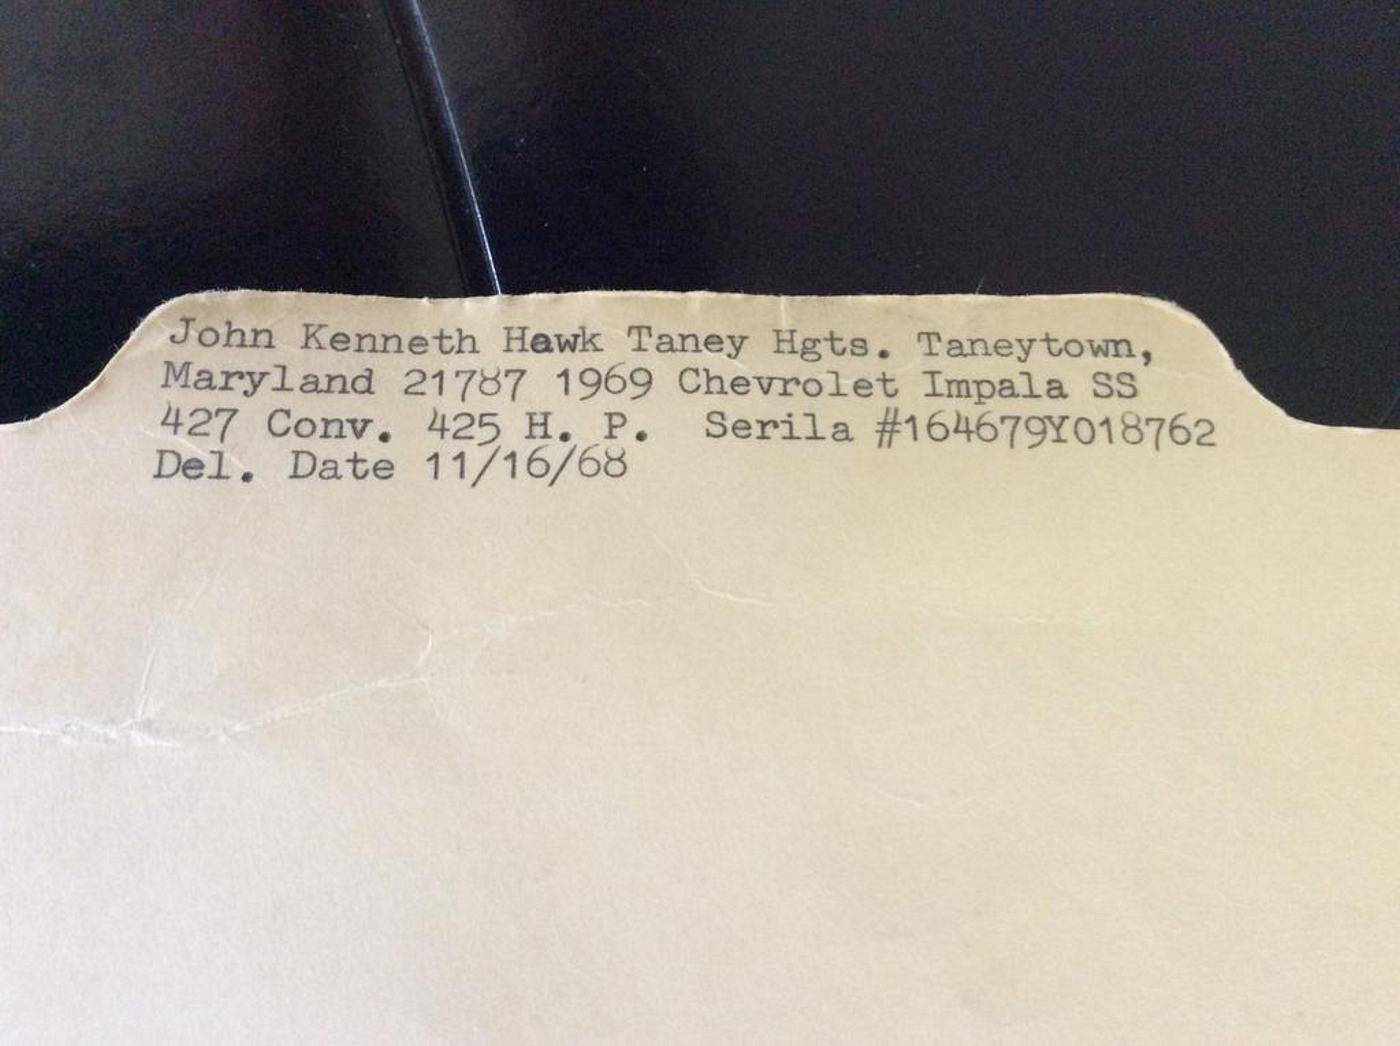 John Kenneth Hawk Taney Hgts. Taneytown,
Maryland 21787 1969 Chevrolet Impala SS
427 Conv. 425 H. P.  Serila #164679Y018762
Del. Date 11/16/68